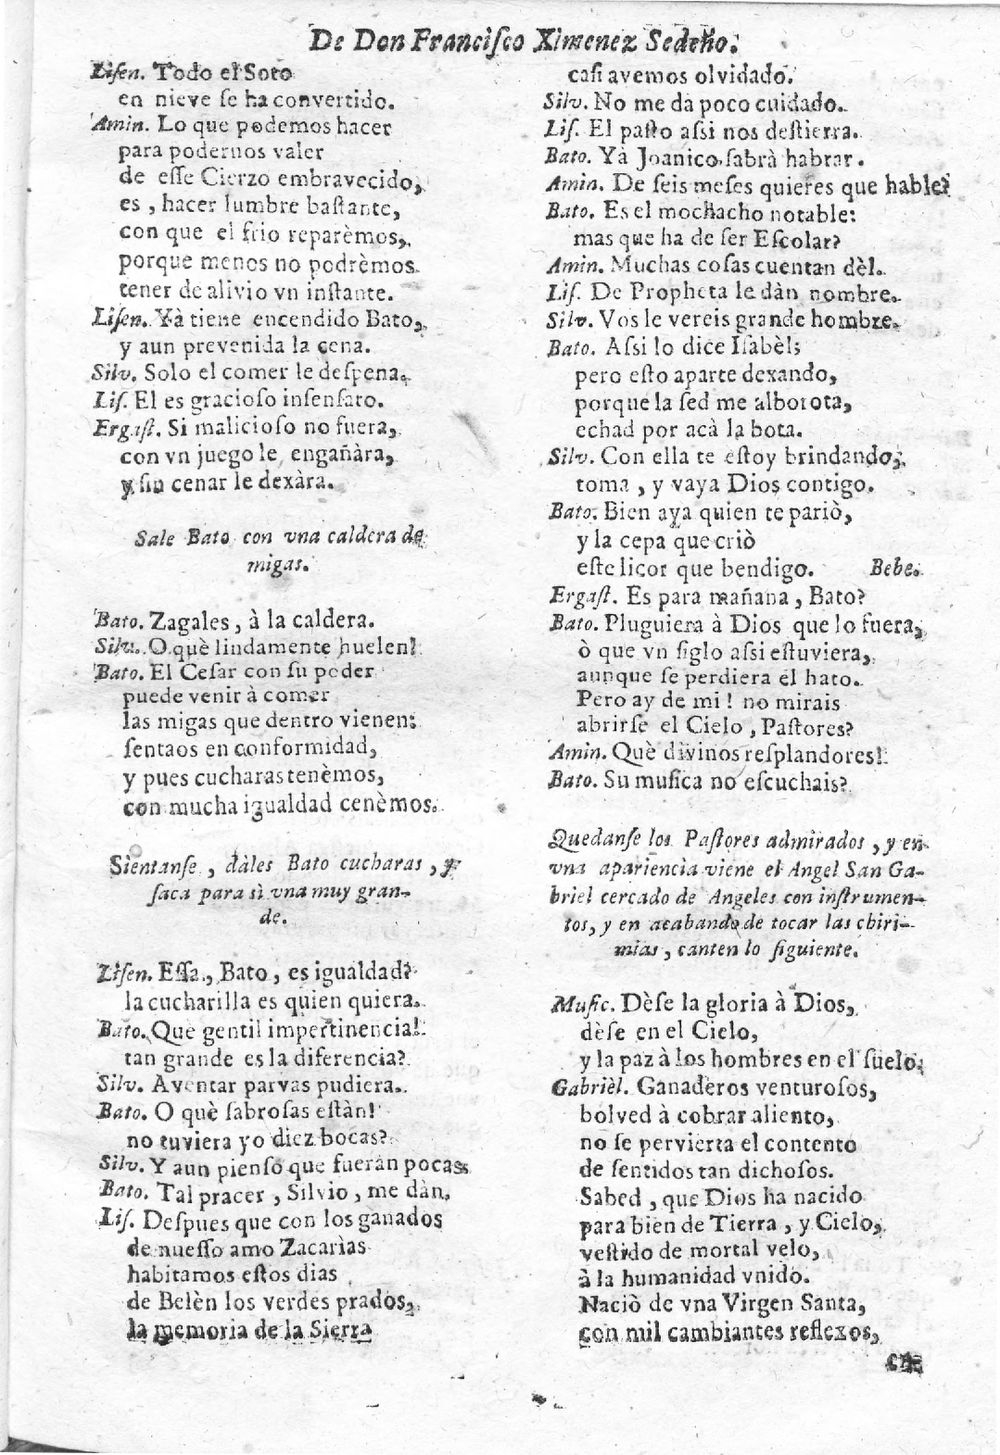 De Don Franciſco Ximenez Sedeño.
Liſen. Todo el Soto
en nieve ſe ha convertido.
Amin. Lo que podemos hacer
para podernos valer
de eſſe Cierzo embravecido,
es, hacer lumbre baſtante,
con que el frio reparèmos,
porque menos no podrèmos
tener de alivio vn inſtante.
Liſen. Yà tiene encendido Bato,
y aun prevenida la cena.
Silv. Solo el comer le deſpena.
Liſ. El es gracioſo inſenſato.
Ergaſt. Si malicioſo no fuera,
con vn juego le engañàra,
y ſin cenar le dexàra.
Sale Bato con vna caldera de
migas.
Bato. Zagales, à la caldera.
Silv. O què lindamente huelen!
Bato. El Ceſar con ſu poder
puede venir à comer
las migas que dentro vienen:
ſentaos en conformidad,
y pues cucharas tenèmos,
con mucha igualdad cenèmos.
Sientanſe, dàles Bato cucharas, y
ſaca para sì vna muy gran-
de.
Liſen. Eſſa, Bato, es igualdad?
la cucharilla es quien quiera.
Bato. Què gentil impertinencia!
tan grande es la diferencia?
Silv. Aventar parvas pudiera.
Bato. O què ſabroſas eſtàn!
no tuviera yo diez bocas?
Silv. Y aun pienſo que fueran pocas.
Bato. Tal pracer, Silvio, me dàn.
Liſ. Deſpues que con los ganados
de nueſſo amo Zacarìas
habitamos eſtos dias
de Belèn los verdes prados,
la memoria de la Sierra
caſi avemos olvidado.
Silv. No me dà poco cuidado.
Liſ. El paſto aſsi nos deſtierra.
Bato. Yà Joanico ſabrà habrar.
Amin. De ſeis meſes quieres que hable?
Bato. Es el mochacho notable:
mas que ha de ſer Eſcolar?
Amin. Muchas coſas cuentan dèl.
Liſ. De Propheta le dàn nombre.
Silv. Vos le vereis grande hombre.
Bato. Aſsi lo dice Iſabèl;
pero eſto aparte dexando,
porque la ſed me alborota,
echad por acà la bota.
Silv. Con ella te eſtoy brindando,
toma, y vaya Dios contigo.
Bato. Bien aya quien te pariò,
y la cepa que criò
eſte licor que bendigo. Bebe.
Ergaſt. Es para mañana, Bato?
Bato. Pluguiera à Dios que lo fuera,
ò que vn ſiglo aſsi eſtuviera,
aunque ſe perdiera el hato.
Pero ay de mi! no mirais
abrirſe el Cielo, Paſtores?
Amin. Què divinos reſplandores!
Bato. Su muſica no eſcuchais?
Quedanſe los Paſtores admirados, y en
vna apariencia viene el Angel San Ga-
briel cercado de Angeles con inſtrumen-
tos, y en acabando de tocar las chiri-
mias, canten lo ſiguiente.
Muſic. Dèſe la gloria à Dios,
dèſe en el Cielo,
y la paz à los hombres en el ſuelo.
Gabrièl. Ganaderos venturoſos,
bolved à cobrar aliento,
no ſe pervierta el contento
de ſentidos tan dichoſos.
Sabed, que Dios ha nacido
para bien de Tierra, y Cielo,
veſtido de mortal velo,
à la humanidad vnido.
Naciò de vna Virgen Santa,
con mil cambiantes reflexos,